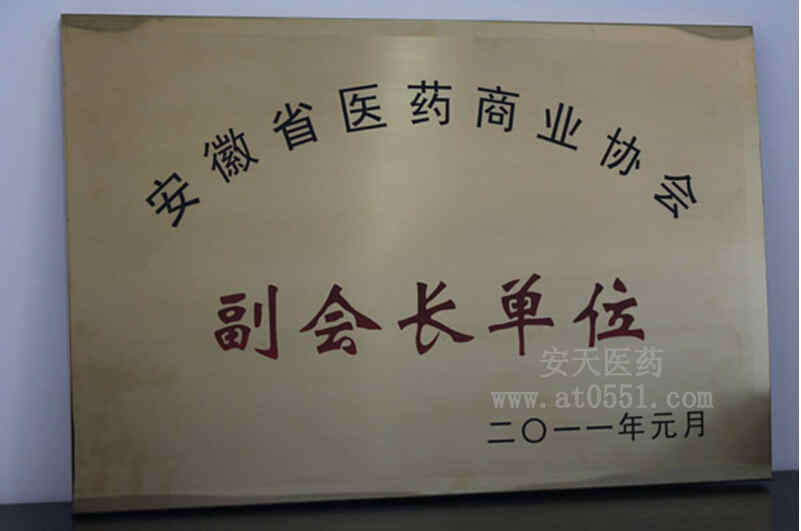 安徽省医药商业协会
副会长单位
安天医药
www.at0551.com
二〇一一年元月